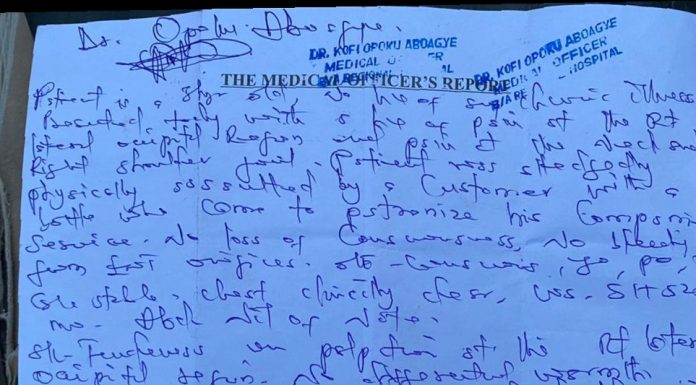 Dr. Opoku Aboagye.
DR. KOFI OPOKU ABOAGYE
MEDICAL OFFICER
B/A REGIONAL HOSPITAL
DR. KOFI OPOKU ABOAGYE
MEDICAL OFFICER
B/A RE HOSPITAL
THE MEDICAL OFFICER'S REPORT
Patient is a old. No hx of any chronic illness
Presented today with a hx of pain at the Rt
lateral occipital Region and pain at the neck and
Right shoulder joint. Patient was allegedly
physically assaulted by a Customer with a
bottle who came to patronize his Company
service. No loss of Consciousness, No bleeding
from orifices. o/e - Conscious,
stable. chest clinically clear, CVS - S1 S2
no. Abd - Nil of Note.
Tenderness on palpation at the Rt later
occipital region. No differential warmth